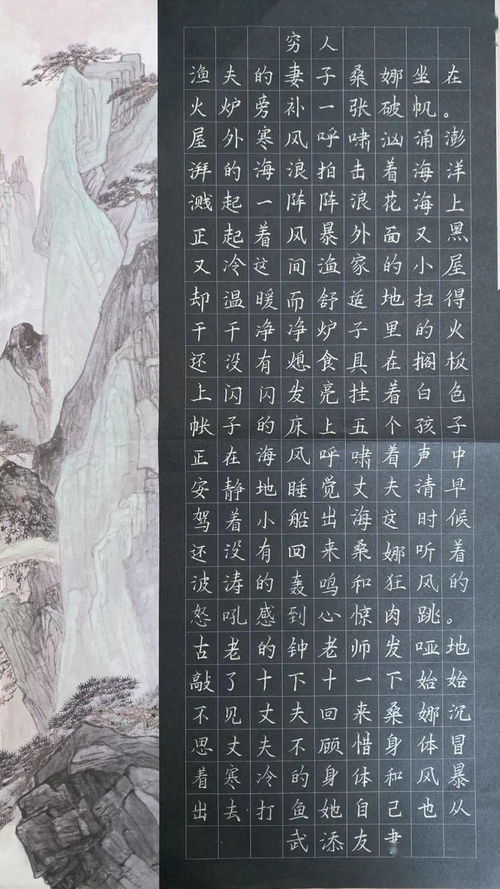 穷人
渔夫的妻子桑娜坐在
火炉旁补一张破帆。
屋外寒风呼啸汹涌澎
湃的海浪拍击着海洋
溅起一阵阵浪花海上
正起着风暴外面又黑
又冷这间渔家的小屋
却温暖而舒适地扫得
干干净净炉子里的火
还没有熄食具在搁板
上闪闪发亮挂着白色
帐子的床上五个孩子
正在海风呼啸着声中
安静地睡觉丈夫清早
驾着小船出海这时候
还没有回来桑娜听着
波涛的轰鸣和狂风的
怒吼感到心惊肉跳。
古老的钟老师发哑地
敲了十下十一下始始
不见丈夫回来桑娜沉
思丈夫不顾惜身体冒
着寒冷的身体和风暴
出去打鱼她自己也从
武添友书